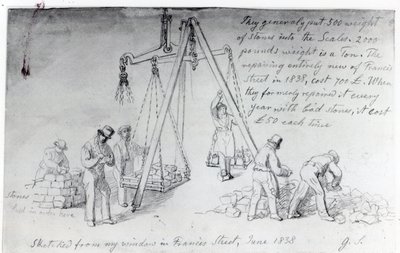 They generaly put 500 weight
of Stones into the Scales. 2000
pounds weight is a Ton. The
repairing entirely new of Francis
Street in 1838, cost 700 £. When
they formerly repaired it every
year with bad stones, it cost
£50 each time
Stones
here
Sketched from my window in Francis Street, June 1838
G. S.